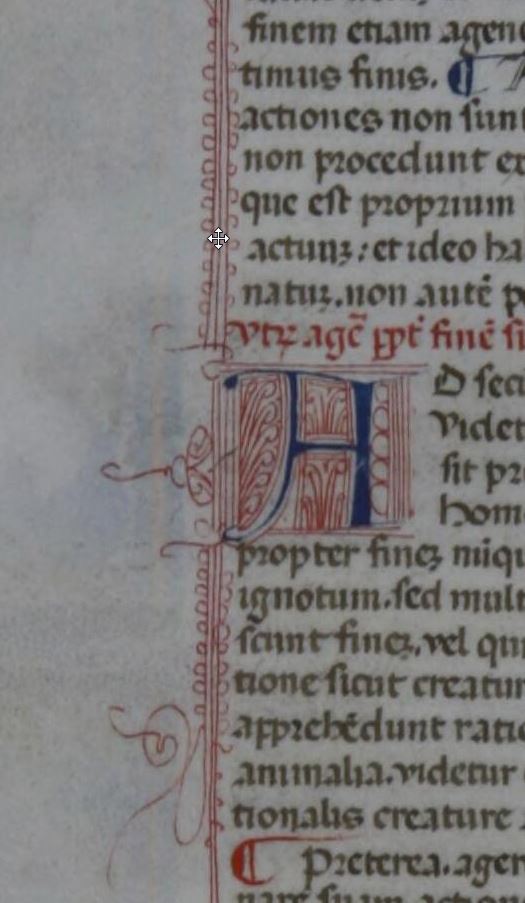 finem etiam agen
timus finis. ¶
actiones non sunt
non procedunt ex
que est proprium
actuuʒ: et ideo ha
natur. non autē p
vtrͫ agē ppt̄ finē si
A D sec
videt
sit pr
hom
propter fineʒ niqu
ignotum. sed mult
sciunt fineʒ. vel qu
tione sicut creatur
apprehēdunt ratio
animalia. videtur
tionalis creature
¶ Preterea. agen
nare suam action